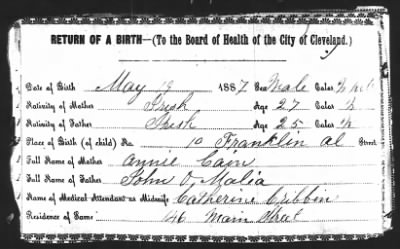 RETURN OF A BIRTH—(To the Board of Health of the City of Cleveland.)
Date of Birth May 19 1887 Sex Male Color
Nativity of Mother Irish Age 27 Color W
Nativity of Father Irish Age 25 Color W
Place of Birth (of child) No. 10 Franklin al Street
Full Name of Mother Annie Cain
Full Name of Father John O, Malia
Name of Medical Attendant or Midwife Catherine Gibbin
Residence of Same 46 Main Street